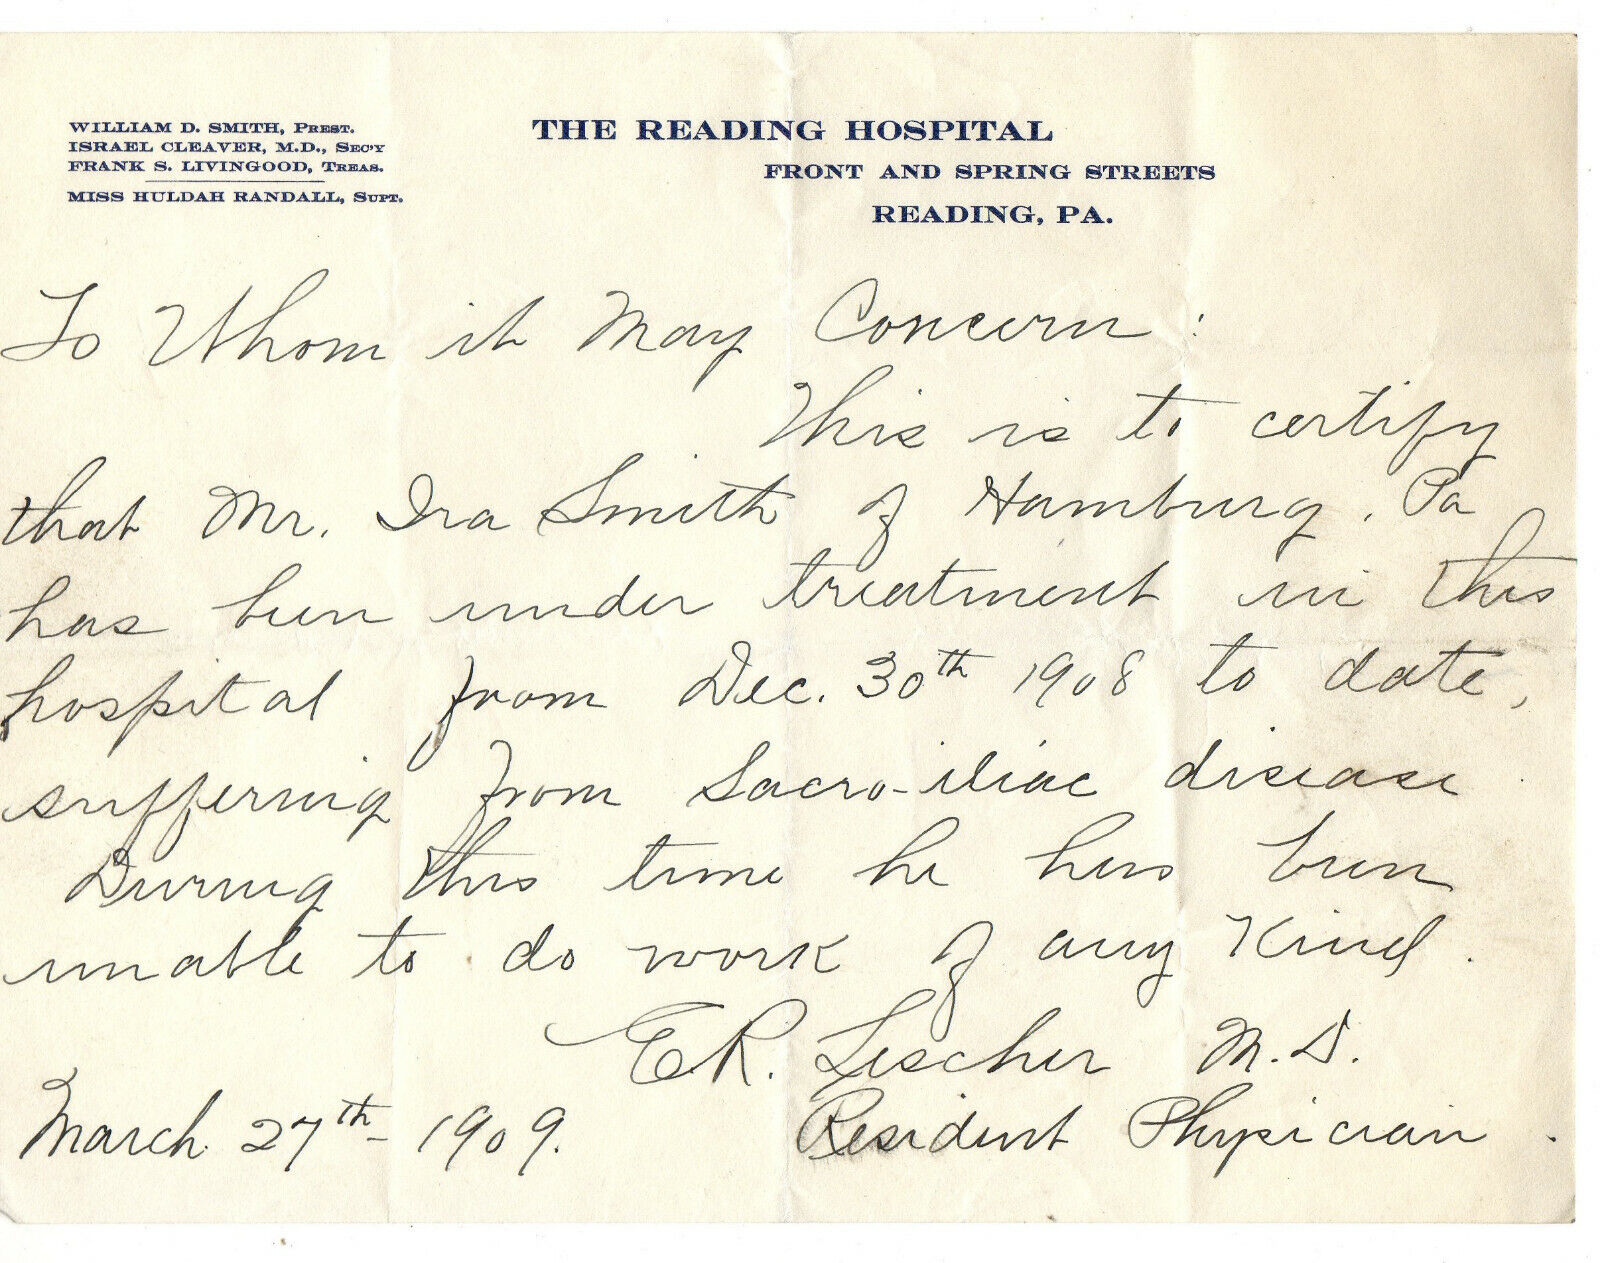 WILLIAM D. SMITH, PREST.
ISRAEL CLEAVER, M.D., SEC'Y
FRANK S. LIVINGOOD, TREAS.
MISS HULDAH RANDALL, SUPT.
THE READING HOSPITAL
FRONT AND SPRING STREETS
READING, PA.
To Whom it May Concern:
This is to certify
that Mr. Ira Smith of Hamburg, Pa
has been under treatment in this
hospital from Dec. 30th 1908 to date,
suffering from Sacro-iliac disease.
During this time he has been
unable to do work of any Kind.
E R. Lescher M.D.
March 27th 1909.
Resident Physician.